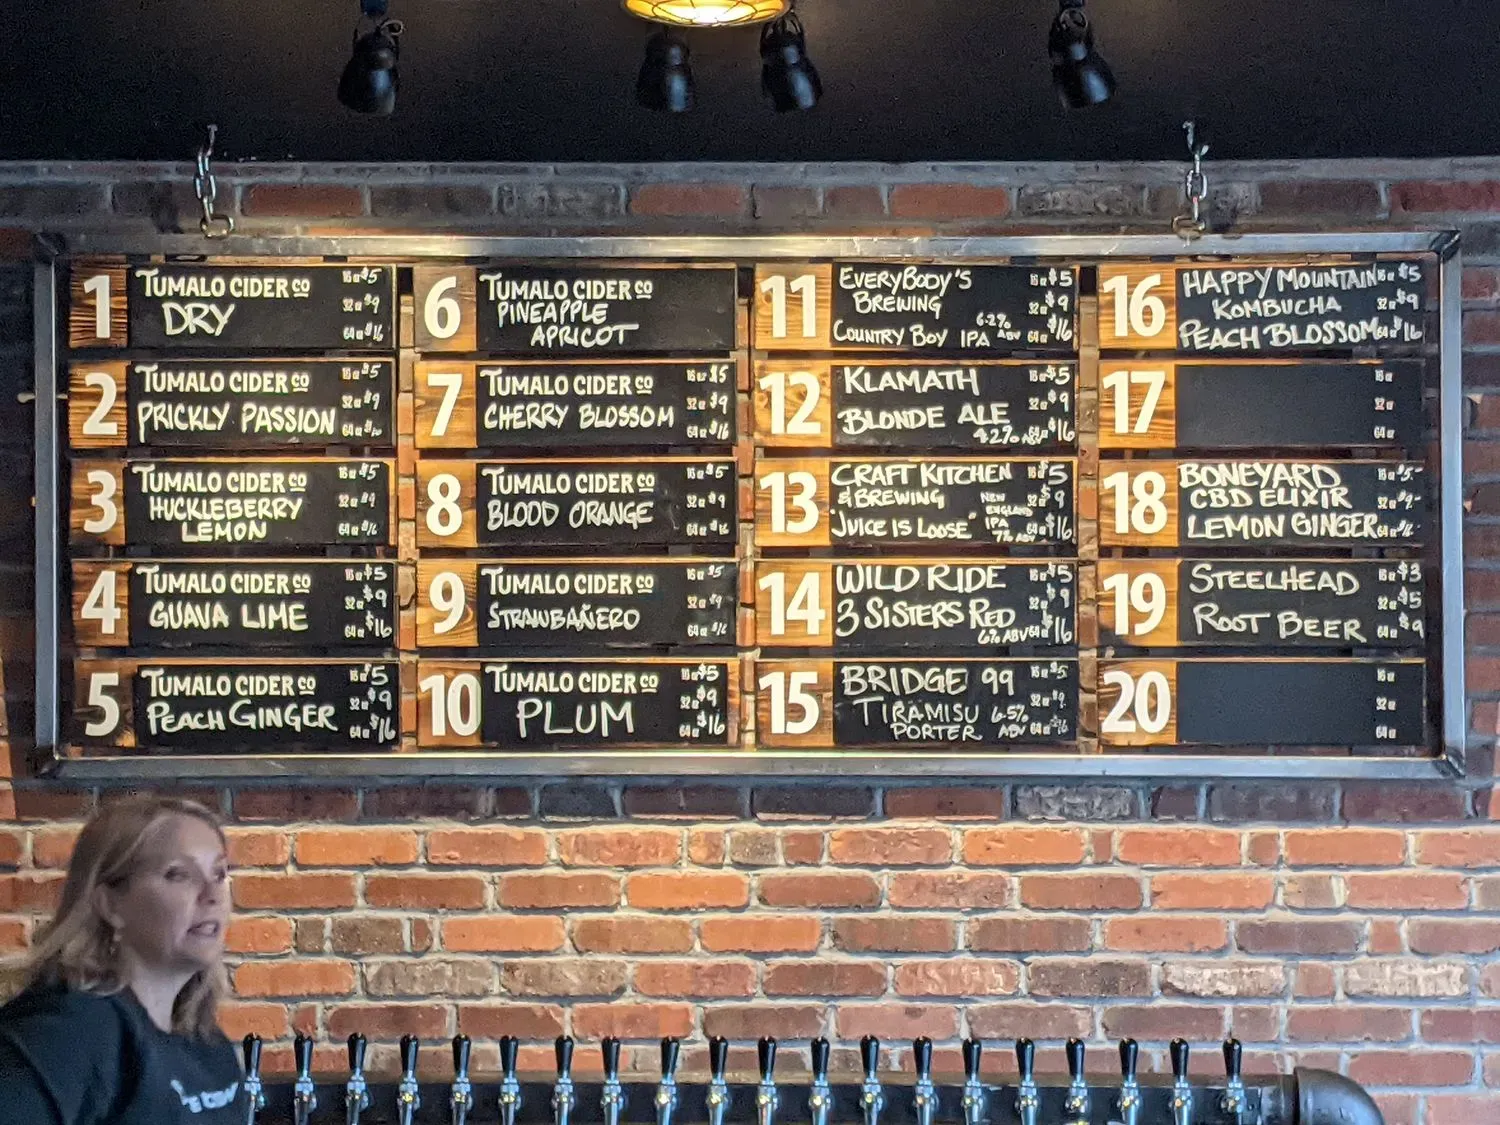 1
TUMALO CIDER CO
DRY
16 oz $5
32 oz $9
64 oz $16
2
TUMALO CIDER CO
PRICKLY PASSION
16 oz $5
32 oz $9
64 oz $16
3
TUMALO CIDER CO
HUCKLEBERRY
LEMON
16 oz $5
32 oz $9
64 oz $16
4
TUMALO CIDER CO
GUAVA LIME
16 oz $5
32 oz $9
64 oz $16
5
TUMALO CIDER CO
PEACH GINGER
16 oz $5
32 oz $9
64 oz $16
6
TUMALO CIDER CO
PINEAPPLE
APRICOT
7
TUMALO CIDER CO
CHERRY BLOSSOM
16 oz $5
32 oz $9
64 oz $16
8
TUMALO CIDER CO
BLOOD ORANGE
16 oz $5
32 oz $9
64 oz $16
9
TUMALO CIDER CO
STRAWBAÑERO
16 oz $5
32 oz $9
64 oz $16
10
TUMALO CIDER CO
PLUM
16 oz $5
32 oz $9
64 oz $16
11
EVERYBODY'S
BREWING
COUNTRY BOY IPA 6.2% ABV
16 oz $5
32 oz $9
64 oz $16
12
KLAMATH
BLONDE ALE
4.2% ABV
16 oz $5
32 oz $9
64 oz $16
13
CRAFT KITCHEN
& BREWING
"JUICE IS LOOSE"
NEW
ENGLAND
IPA
7% ABV
16 oz $5
32 oz $9
64 oz $16
14
WILD RIDE
3 SISTERS RED
6% ABV
16 oz $5
32 oz $9
64 oz $16
15
BRIDGE 99
TIRAMISU 6.5%
PORTER ABV
16 oz $5
32 oz $9
64 oz $16
16
HAPPY MOUNTAIN
KOMBUCHA
PEACH BLOSSOM
16 oz $5
32 oz $9
64 oz $16
17
16 oz
32 oz
64 oz
18
BONEYARD
CBD ELIXIR
LEMON GINGER
16 oz $5-
32 oz $9-
64 oz $16-
19
STEELHEAD
ROOT BEER
16 oz $3
32 oz $5
64 oz $9
20
16 oz
32 oz
64 oz